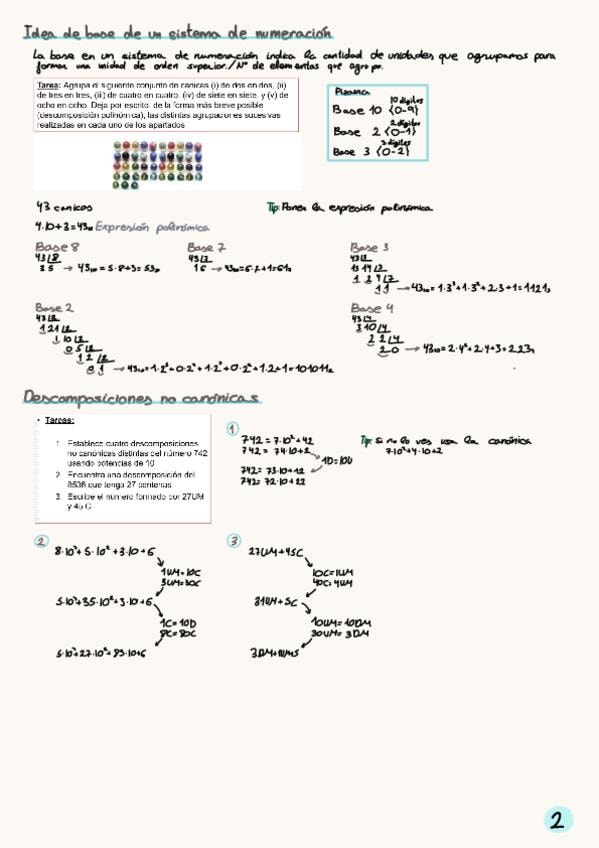 Idea de base de un sistema de numeración
La base en un sistema de numeración indica la cantidad de unidades que agrupamos para
formar una unidad de orden superior./Nº de elementos que agrupo.
Tarea: Agrupa el siguiente conjunto de canicas (i) de dos en dos, (ii)
de tres en tres, (iii) de cuatro en cuatro, (iv) de siete en siete, y (v) de
ocho en ocho. Deja por escrito, de la forma más breve posible
(descomposición polinómica), las distintas agrupaciones sucesivas
realizadas en cada uno de los apartados
Pizarra
10 dígitos
Base 10 {0-9}
2 dígitos
Base 2 {0-1}
3 dígitos
Base 3 {0-2}
43 canicas
Tip: Poner la expresión polinómica
4·10+3=43₁₀ Expresión polinómica
Base 8
43 |8
3 5 → 43₁₀=5·8+3=53₈
Base 7
43 |7
1 6 → 43₁₀=6·7+1=61₇
Base 3
43 |3
13 14 |3
1 2 4 |3
1 1 → 43₁₀=1·3³+1·3²+2·3+1=1121₃
Base 2
43 |2
1 21 |2
1 10 |2
0 5 |2
1 2 |2
0 1 → 43₁₀=1·2⁵+0·2⁴+1·2³+0·2²+1·2+1=101011₂
Base 4
43 |4
3 10 |4
2 2 |4
2 0 → 43₁₀=2·4²+2·4+3=223₄
Descomposiciones no canónicas
• Tareas:
1. Establece cuatro descomposiciones
no canónicas distintas del número 742
usando potencias de 10
2. Encuentra una descomposición del
8536 que tenga 27 centenas
3. Escribe el número formado por 27UM
y 45 C
1
742=7·10²+42
742= 74·10+2
1D=10U
742= 73·10+12
742= 72·10+22
Tip: Si no lo ves usa la canónica
7·10²+4·10+2
2
8·10³+5·10²+3·10+6
1UM=10C
3UM=30C
5·10³+35·10²+3·10+6
1C=10D
8C=80D
5·10³+27·10²+83·10+6
3
27UM+45C
10C=1UM
40C=4UM
31UM+5C
10UM=1DM
30UM=3DM
2